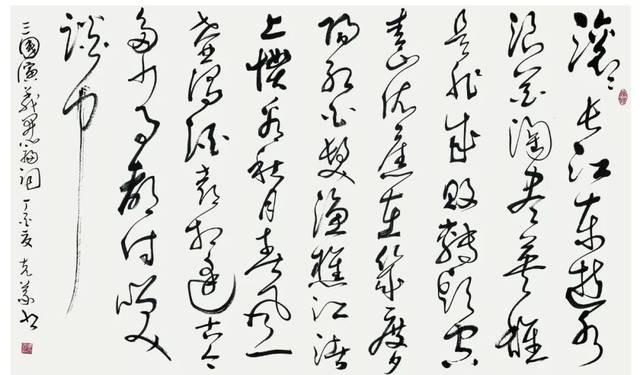 滚滚長江东逝水
浪花淘尽英雄
是非成败转头空
青山依旧在几度夕
阳红白发渔樵江渚
上惯看秋月春风一
壶浊酒喜相逢古今
多少事都付笑
谈中
三國演義词 丁酉夏 克义书